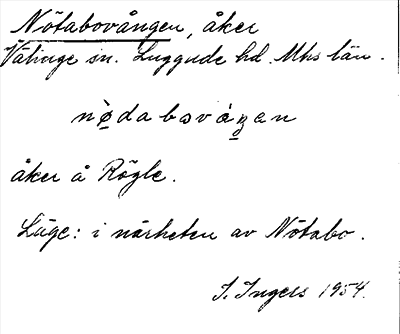 Nötabovången, åker
Välinge sn. Luggude hd. Mhs län.
nö̀dabovåŋen
åker å Rögle.
Läge: i närheten av Nötabo.
I. Ingers 1954.